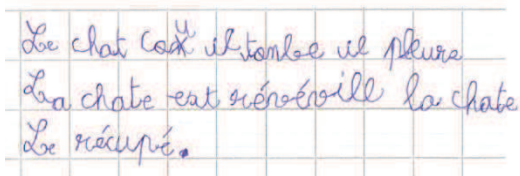 Le chat cou il tombe il pleure
La chate est rénévéill la chate
Le récupé.